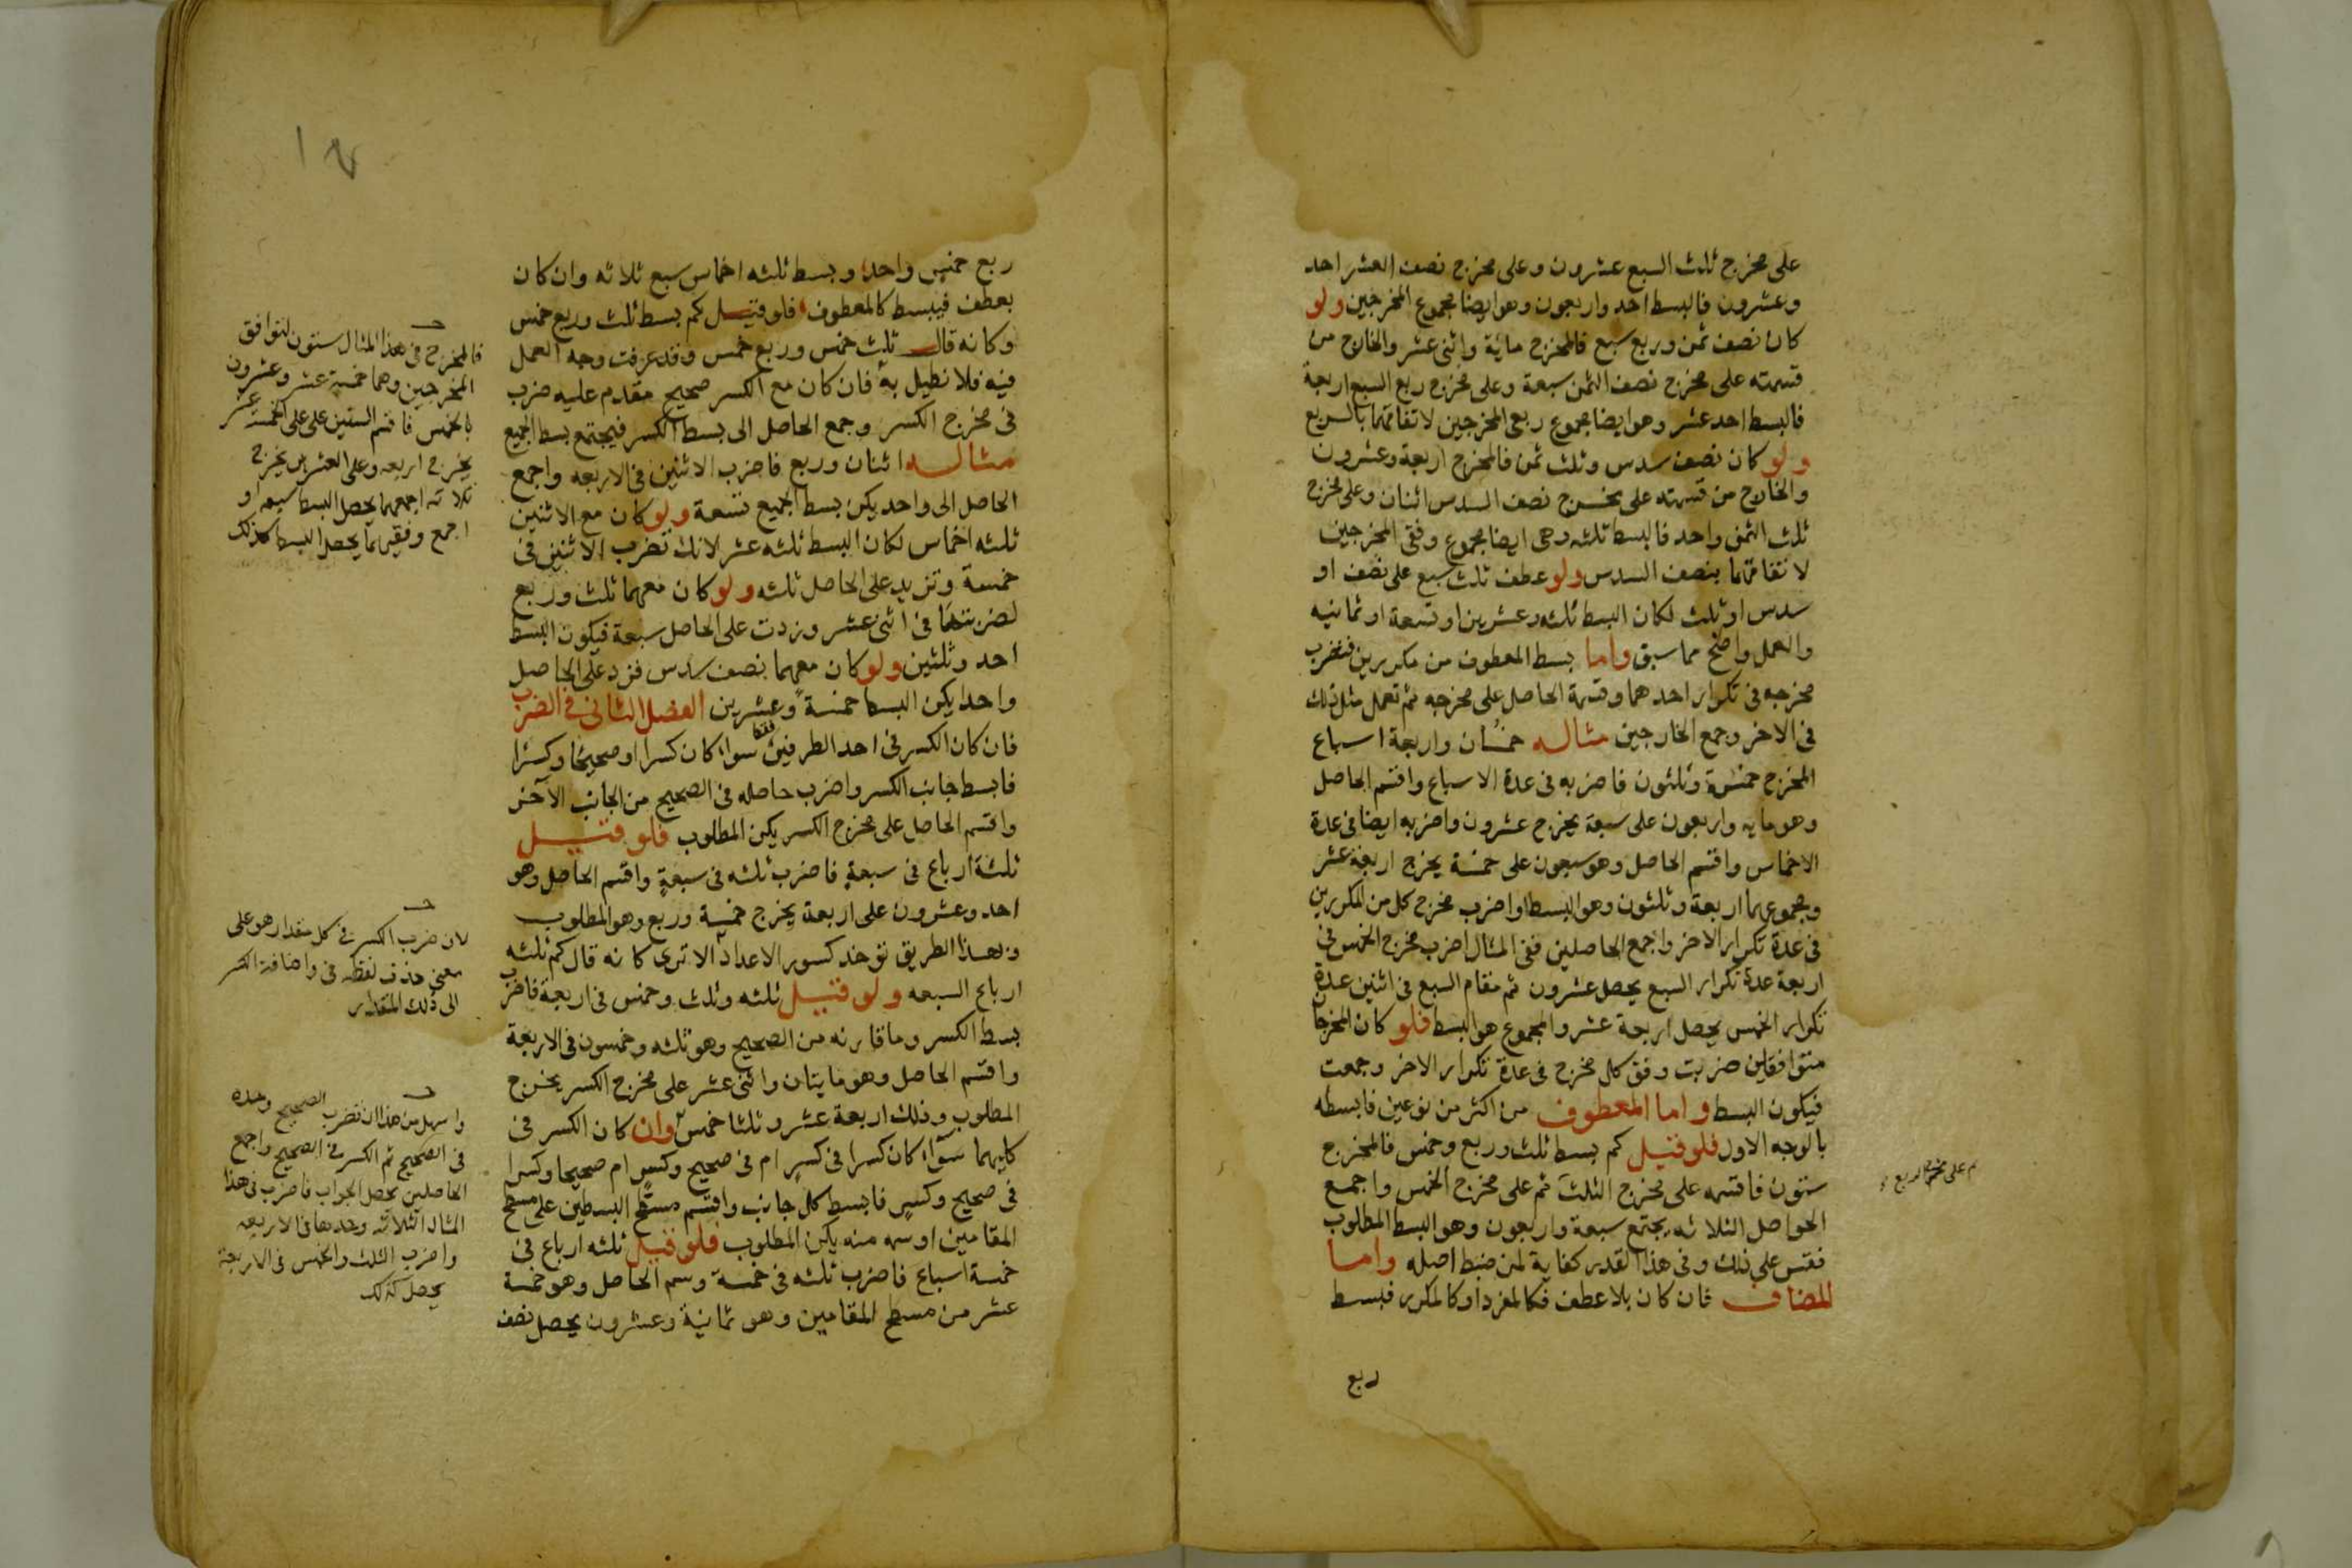 على مخرج ثلث السبع عشرون وعلى مخرج نصف العشر احد
وعشرون فالبسط احد واربعون وهو ايضا مجموع المخرجين ولو
كان نصف ثمن وربع سبع فالمخرج ماية واثنى عشر والخارج من
قسمته على مخرج نصف الثمن سبعة وعلى مخرج ربع السبع اربعة
فالبسط احد عشر وهو ايضا مجموع ربعى المخرجين لاتفاقهما بالربع
ولو كان نصف سدس وثلث ثمن فالمخرج اربعة وعشرون
والخارج من قسمته على مخرج نصف السدس اثنان وعلى مخرج
ثلث الثمن واحد فالبسط ثلثه وهى ايضا مجموع وفقى المخرجين
لاتفاقهما بنصف السدس ولو عطف ثلث سبع على نصف او
سدس او ثلث لكان البسط ثلثه وعشرين او تسعة او ثمانيه
والعمل واضح مما سبق واما بسط المعطوف من مكررين فتضرب
مخرجه فى تكرار احدهما وقسمة الحاصل على مخرجه ثم تعمل مثل ذلك
فى الاخر وجمع الخارجين مثاله خمسان واربعة اسباع
المخرج خمسة وثلثون فاضربه فى عدة الاسباع واقسم الحاصل
وهو مايه واربعون على سبعة يخرج عشرون واضربه ايضا فى عدة
الاخماس واقسم الحاصل وهو سبعون على خمسة يخرج اربعة عشر
ومجموعهما اربعة وثلثون وهو البسط او اضرب مخرج كل من المكررين
فى عدة تكرار الاخر واجمع الحاصلين ففى المثال اضرب مخرج الخمس فى
اربعة عدة تكرار السبع يحصل عشرون ثم مقام السبع فى اثنين عدة
تكرار الخمس يحصل اربعة عشر والمجموع هو البسط فلو كان المخرجان
متوافقين ضربت وفق كل مخرج فى عدة تكرار الاخر وجمعت
فيكون البسط واما المعطوف من اكثر من نوعين فابسطه
بالوجه الاول فلو قيل كم بسط ثلث وربع وخمس فالمخرج
ستون فاقسمه على مخرج الثلث ثم على مخرج الخمس واجمع
ثم على مخرج الربع
الحواصل الثلاثه يجتمع سبعة واربعون وهو البسط المطلوب
فقس على ذلك وفى هذا القدر كفاية لمن ضبط اصله واما
المضاف فان كان بلا عطف فكالمفرد او كالمكرر فبسط
ربع
ربع خمس واحد وبسط ثلثه اخماس سبع ثلاثه وان كان
بعطف فيبسط كالمعطوف فلو قيل كم بسط ثلث وربع خمس
وكانه قال ثلث خمس وربع خمس وقد عرفت وجه العمل
فيه فلا نطيل به فان كان مع الكسر صحيح مقدم عليه ضرب
فى مخرج الكسر وجمع الحاصل الى بسط الكسر فيجتمع بسط الجميع
مثاله اثنان وربع فاضرب الاثنين فى الاربعه واجمع
الحاصل الى واحد يكن بسط الجميع تسعة ولو كان مع الاثنين
ثلثه اخماس لكان البسط ثلثه عشر لانك تضرب الاثنين فى
خمسة وتزيد على الحاصل ثلثه ولو كان معهما ثلث وربع
لضربتهما فى اثنى عشر وزدت على الحاصل سبعة فيكون البسط
احد وثلثين ولو كان معهما نصف سدس فزد على الحاصل
واحدا يكن البسط خمسة وعشرين الفصل الثانى فى الضرب
فان كان الكسر فى احد الطرفين فقط سواء كان كسرا او صحيحا وكسرا
فابسط جانب الكسر واضرب حاصله فى الصحيح من الجانب الآخر
واقسم الحاصل على مخرج الكسر يكن المطلوب فلو قيل
ثلثة ارباع فى سبعة فاضرب ثلثه فى سبعة واقسم الحاصل وهو
احد وعشرون على اربعة يخرج خمسة وربع وهو المطلوب
وبهذا الطريق توخذ كسور الاعداد الا ترى كانه قال كم ثلثه
ارباع السبعه ولو قيل ثلثه وثلث وخمس فى اربعة فاضرب
بسط الكسر وما قارنه من الصحيح وهو ثلثه وخمسون فى الاربعة
واقسم الحاصل وهو مايتان واثنى عشر على مخرج الكسر يخرج
المطلوب وذلك اربعة عشر وثلثا خمس وان كان الكسر فى
كليهما سواء كان كسرا فى كسر ام فى صحيح وكسر ام صحيحا وكسرا
فى صحيح وكسر فابسط كل جانب واقسم مسطح البسطين على مسطح
المقامين او سمه منه يكن المطلوب فلو قيل ثلثه ارباع فى
خمسة اسباع فاضرب ثلثه فى خمسة وسم الحاصل وهو خمسة
عشر من مسطح المقامين وهو ثمانية وعشرون يحصل نصف
فالمخرج فى هذا المثال ستون لتوافق
المخرجين وهما خمسة عشر وعشرون
بالخمس فاقسم الستين على على الخمسة عشر
يخرج اربعه وعلى العشرين يخرج
ثلاثه اجمعهما يحصل البسط سبعه او
اجمع وفقيهما يحصل البسط كذلك
لان ضرب الكسر فى كل مقدار هو على
معنى حذف لفظه فى واضافة الكسر
الى ذلك المقدار
واسهل من هذا ان تضرب الصحيح وحده
فى الصحيح ثم الكسر فى الصحيح واجمع
الحاصلين يحصل الجواب فاضرب فى هذا
المثال الثلاثه وحدها فى الاربعه
واضرب الثلث والخمس فى الاربعة
يحصل كذلك